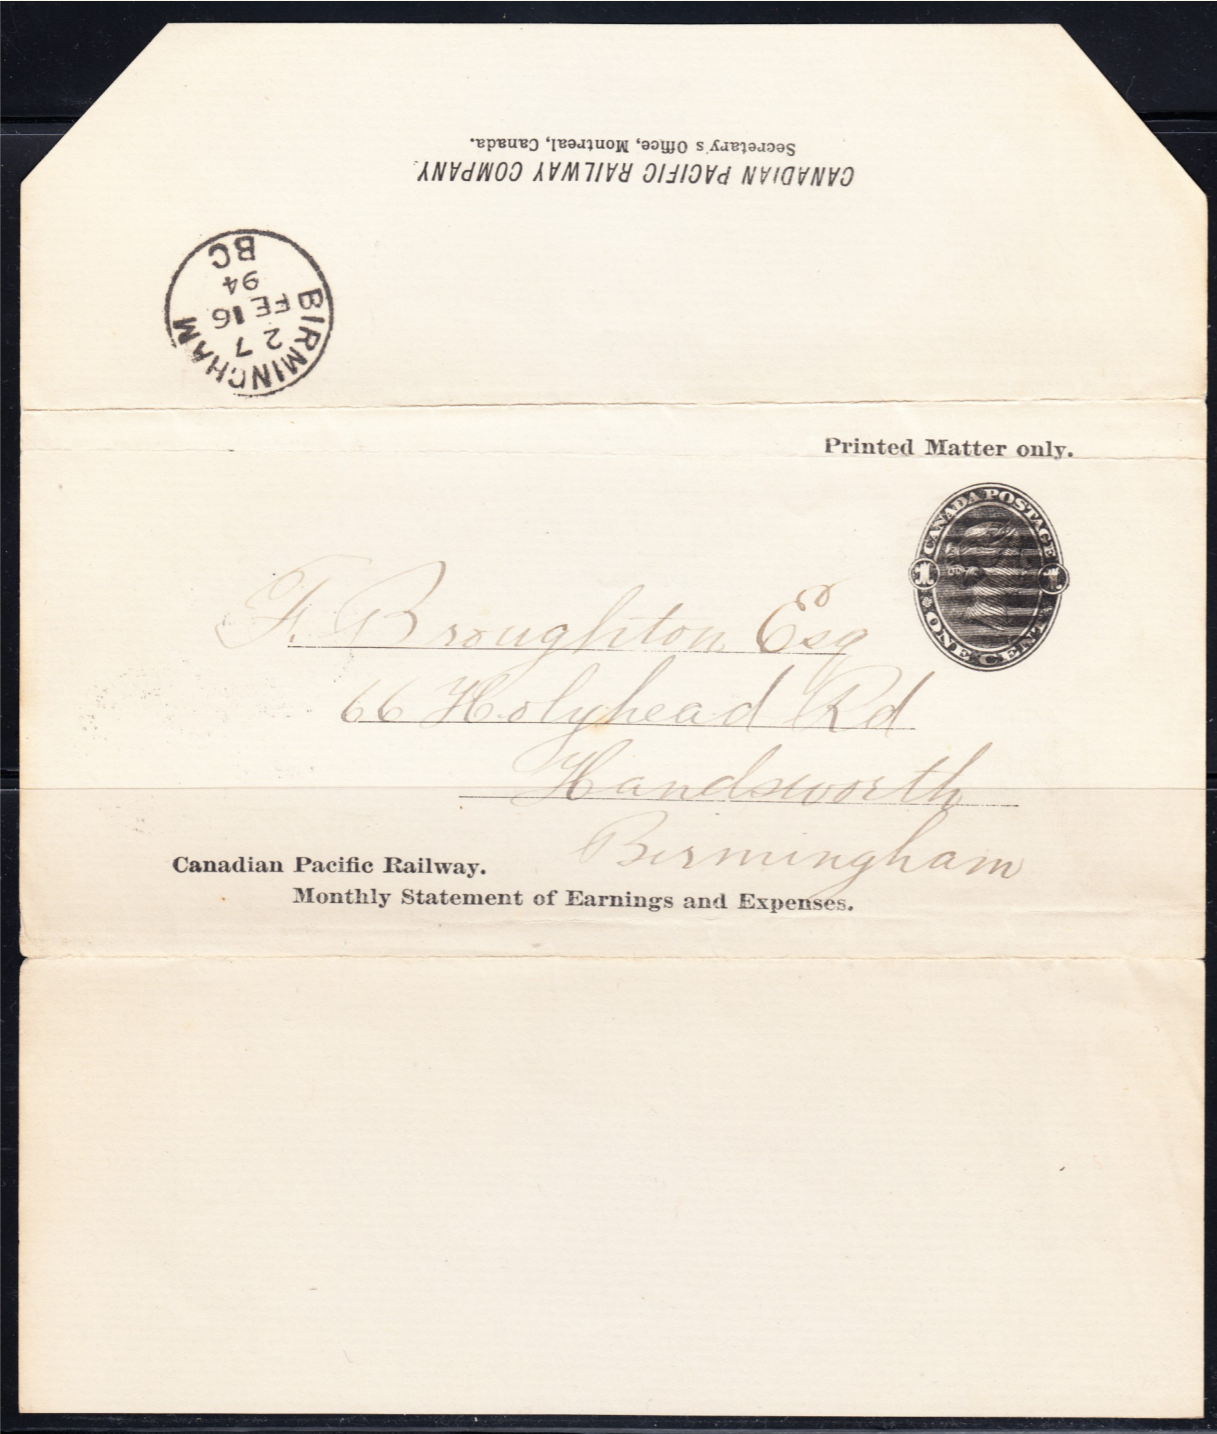 CANADIAN PACIFIC RAILWAY COMPANY.
Secretary's Office, Montreal, Canada.
BIRMINGHAM
2 7
FE 16
94
BC
Printed Matter only.
CANADA POSTAGE
1 1
ONE CENT
F. Broughton Esq
66 Holyhead Rd
Handsworth
Birmingham
Canadian Pacific Railway.
Monthly Statement of Earnings and Expenses.